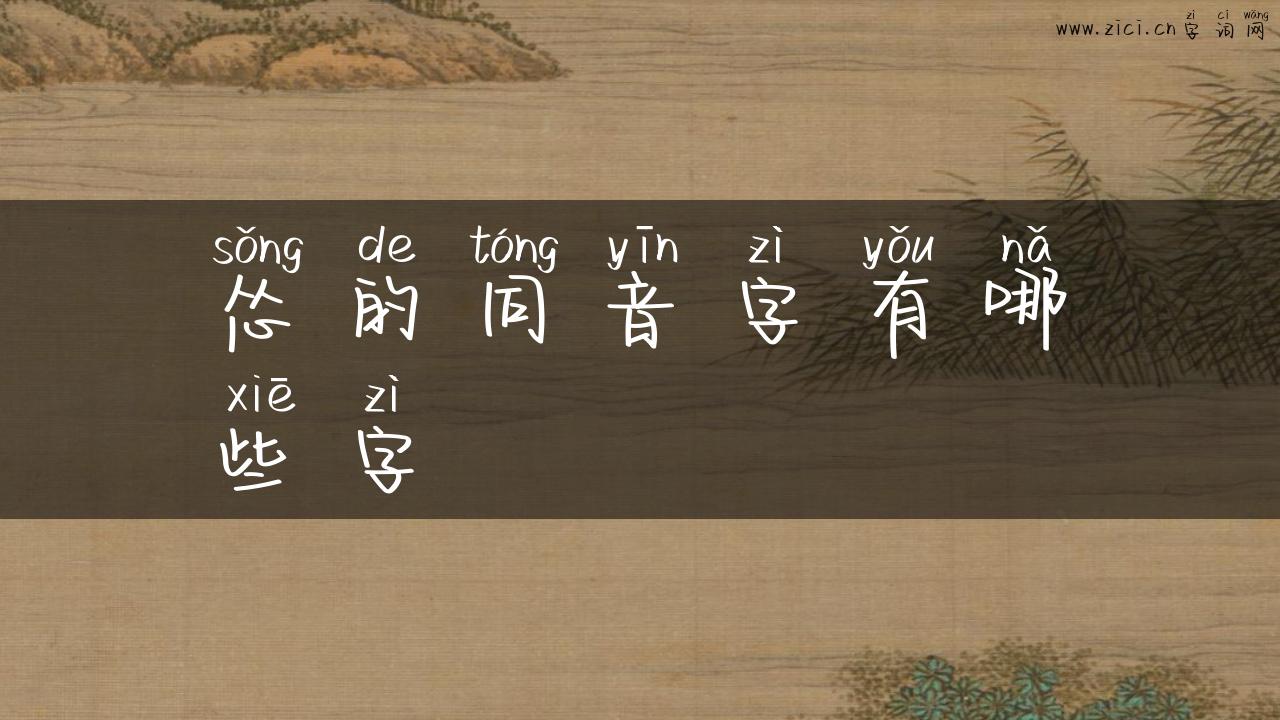 zì cí wǎng
www.zici.cn字词网
sǒng de tóng yīn zì yǒu nǎ
怂的同音字有哪
xiē zì
些字